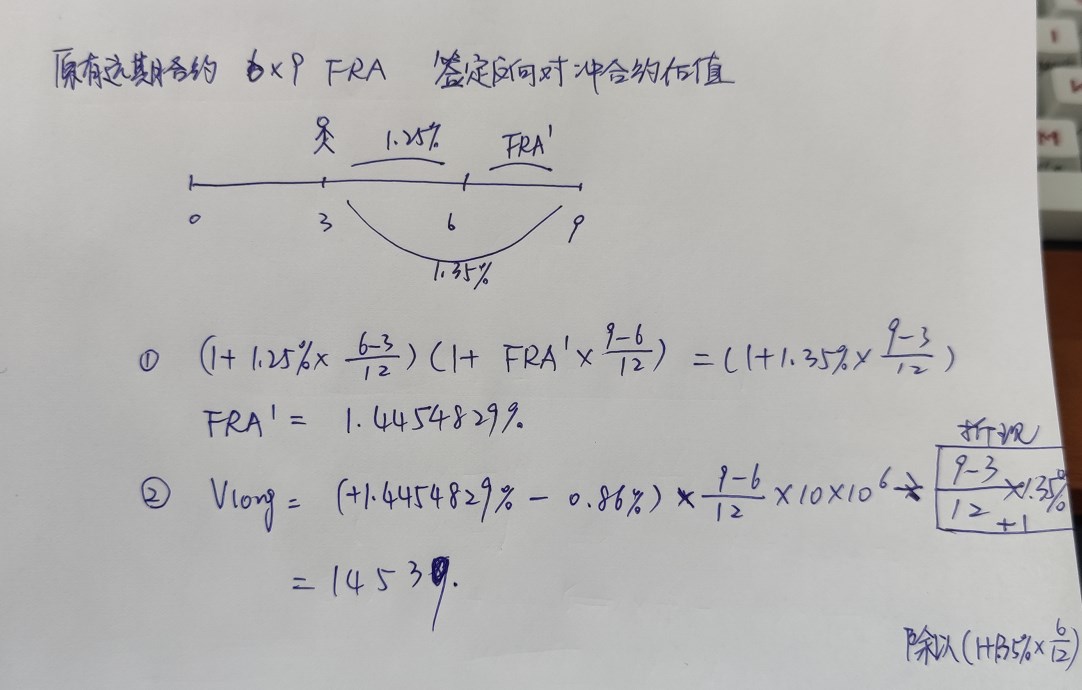 原有远期合约 6×9 FRA 签定反向对冲合约估值
1.25% FRA'
0 3 6 9
1.35%
① (1+1.25%×\frac{6-3}{12})(1+ FRA'×\frac{9-6}{12}) =(1+1.35%×\frac{9-3}{12})
FRA' = 1.4454829%
折现
② Vlong = (+1.4454829% - 0.86%)×\frac{9-6}{12}×10×10^6 ÷ \frac{9-3}{12}×1.35% +1
= 14539.
除以(1+1.35%×\frac{6}{12})